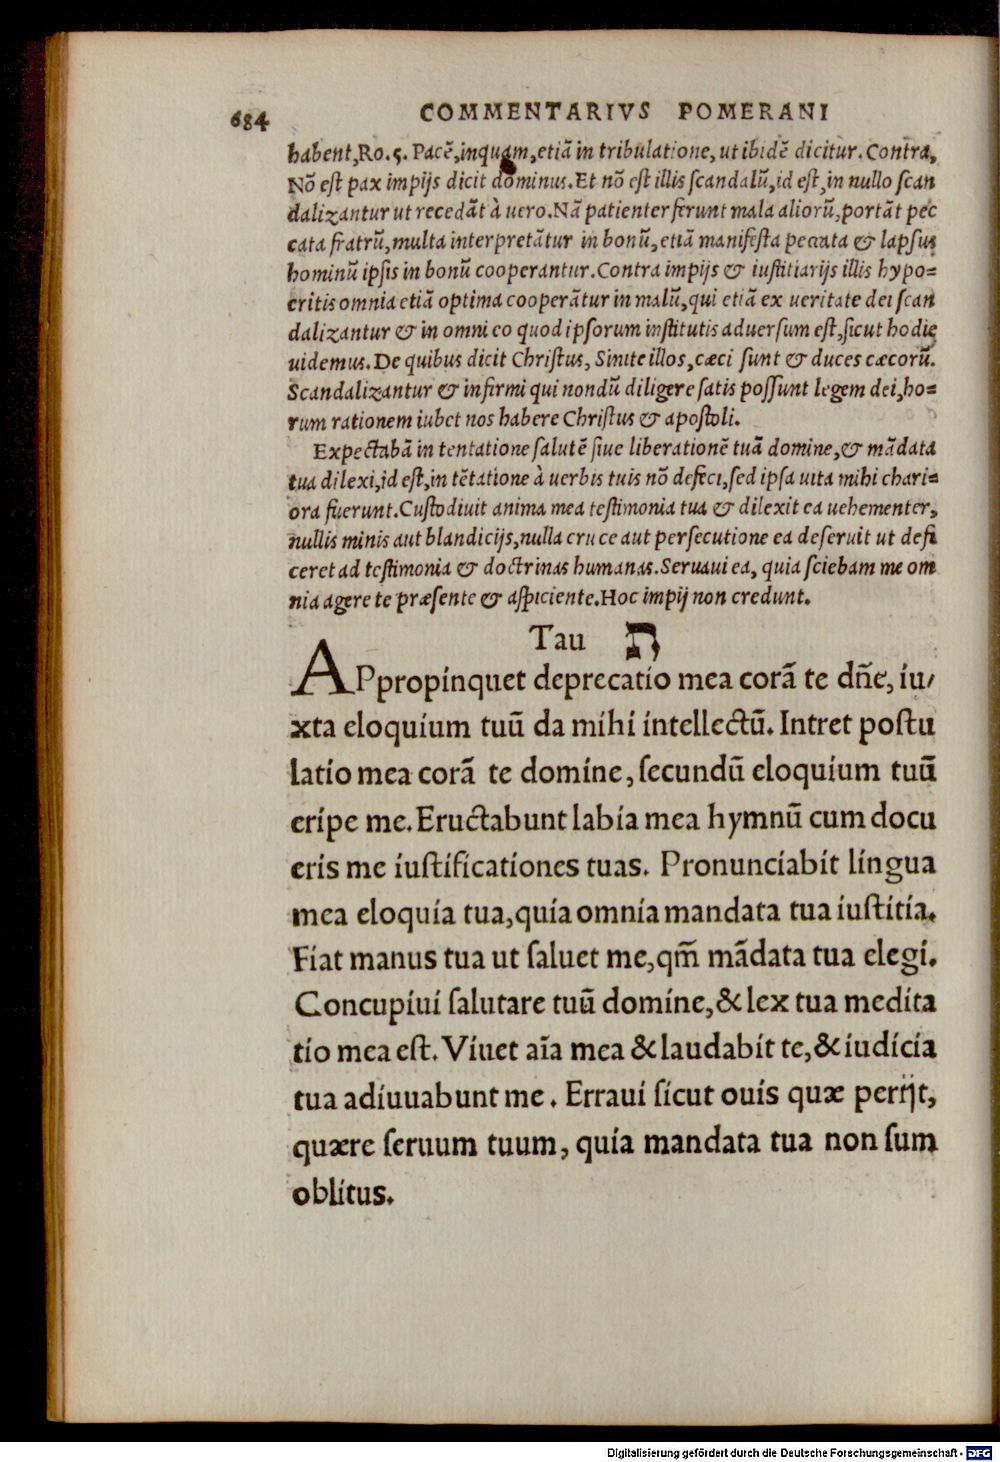 684 COMMENTARIVS POMERANI
habent,Ro.5. Pacē,inquam,etiā in tribulatione, ut ibidē dicitur. Contra,
Nō est pax impijs dicit dominus.Et nō est illis scandalū,id est,in nullo scan
dalizantur ut recedāt à uero.Nā patienter ferunt mala aliorū,portāt pec
cata fratrū,multa interpretātur in bonū,etiā manifesta peccata & lapsus
hominū ipsis in bonū cooperantur.Contra impijs & iustitiarijs illis hypo=
critis omnia etiā optima cooperātur in malū,qui etiā ex ueritate dei scan
dalizantur & in omni eo quod ipsorum institutis aduersum est,sicut hodie
uidemus.De quibus dicit Christus, Sinite illos,cæci sunt & duces cæcorū.
Scandalizantur & infirmi qui nondū diligere satis possunt legem dei,ho=
rum rationem iubet nos habere Christus & apostoli.
Expectabā in tentatione salutē siue liberationē tuā domine,& mādata
tua dilexi,id est,in tētatione à uerbis tuis nō defeci,sed ipsa uita mihi chari=
ora fuerunt.Custodiuit anima mea testimonia tua & dilexit ea uehementer,
nullis minis aut blandicijs,nulla cruce aut persecutione ea deseruit ut defi
ceret ad testimonia & doctrinas humanas.Seruaui ea, quia sciebam me om
nia agere te præsente & aspiciente.Hoc impij non credunt.
Tau ת
APpropinquet deprecatio mea corā te dñe, iu/
xta eloquium tuū da mihi intellectū. Intret postu
latio mea corā te domine, secundū eloquium tuū
eripe me. Eructabunt labia mea hymnū cum docu
eris me iustificationes tuas. Pronunciabit lingua
mea eloquia tua,quia omnia mandata tua iustitia.
Fiat manus tua ut saluet me,qm̄ mādata tua elegi.
Concupiui salutare tuū domine,& lex tua medita
tio mea est. Viuet aīa mea & laudabit te,& iudicia
tua adiuuabunt me. Erraui sicut ouis quæ perijt,
quære seruum tuum, quia mandata tua non sum
oblitus.
Digitalisierung gefördert durch die Deutsche Forschungsgemeinschaft - DFG